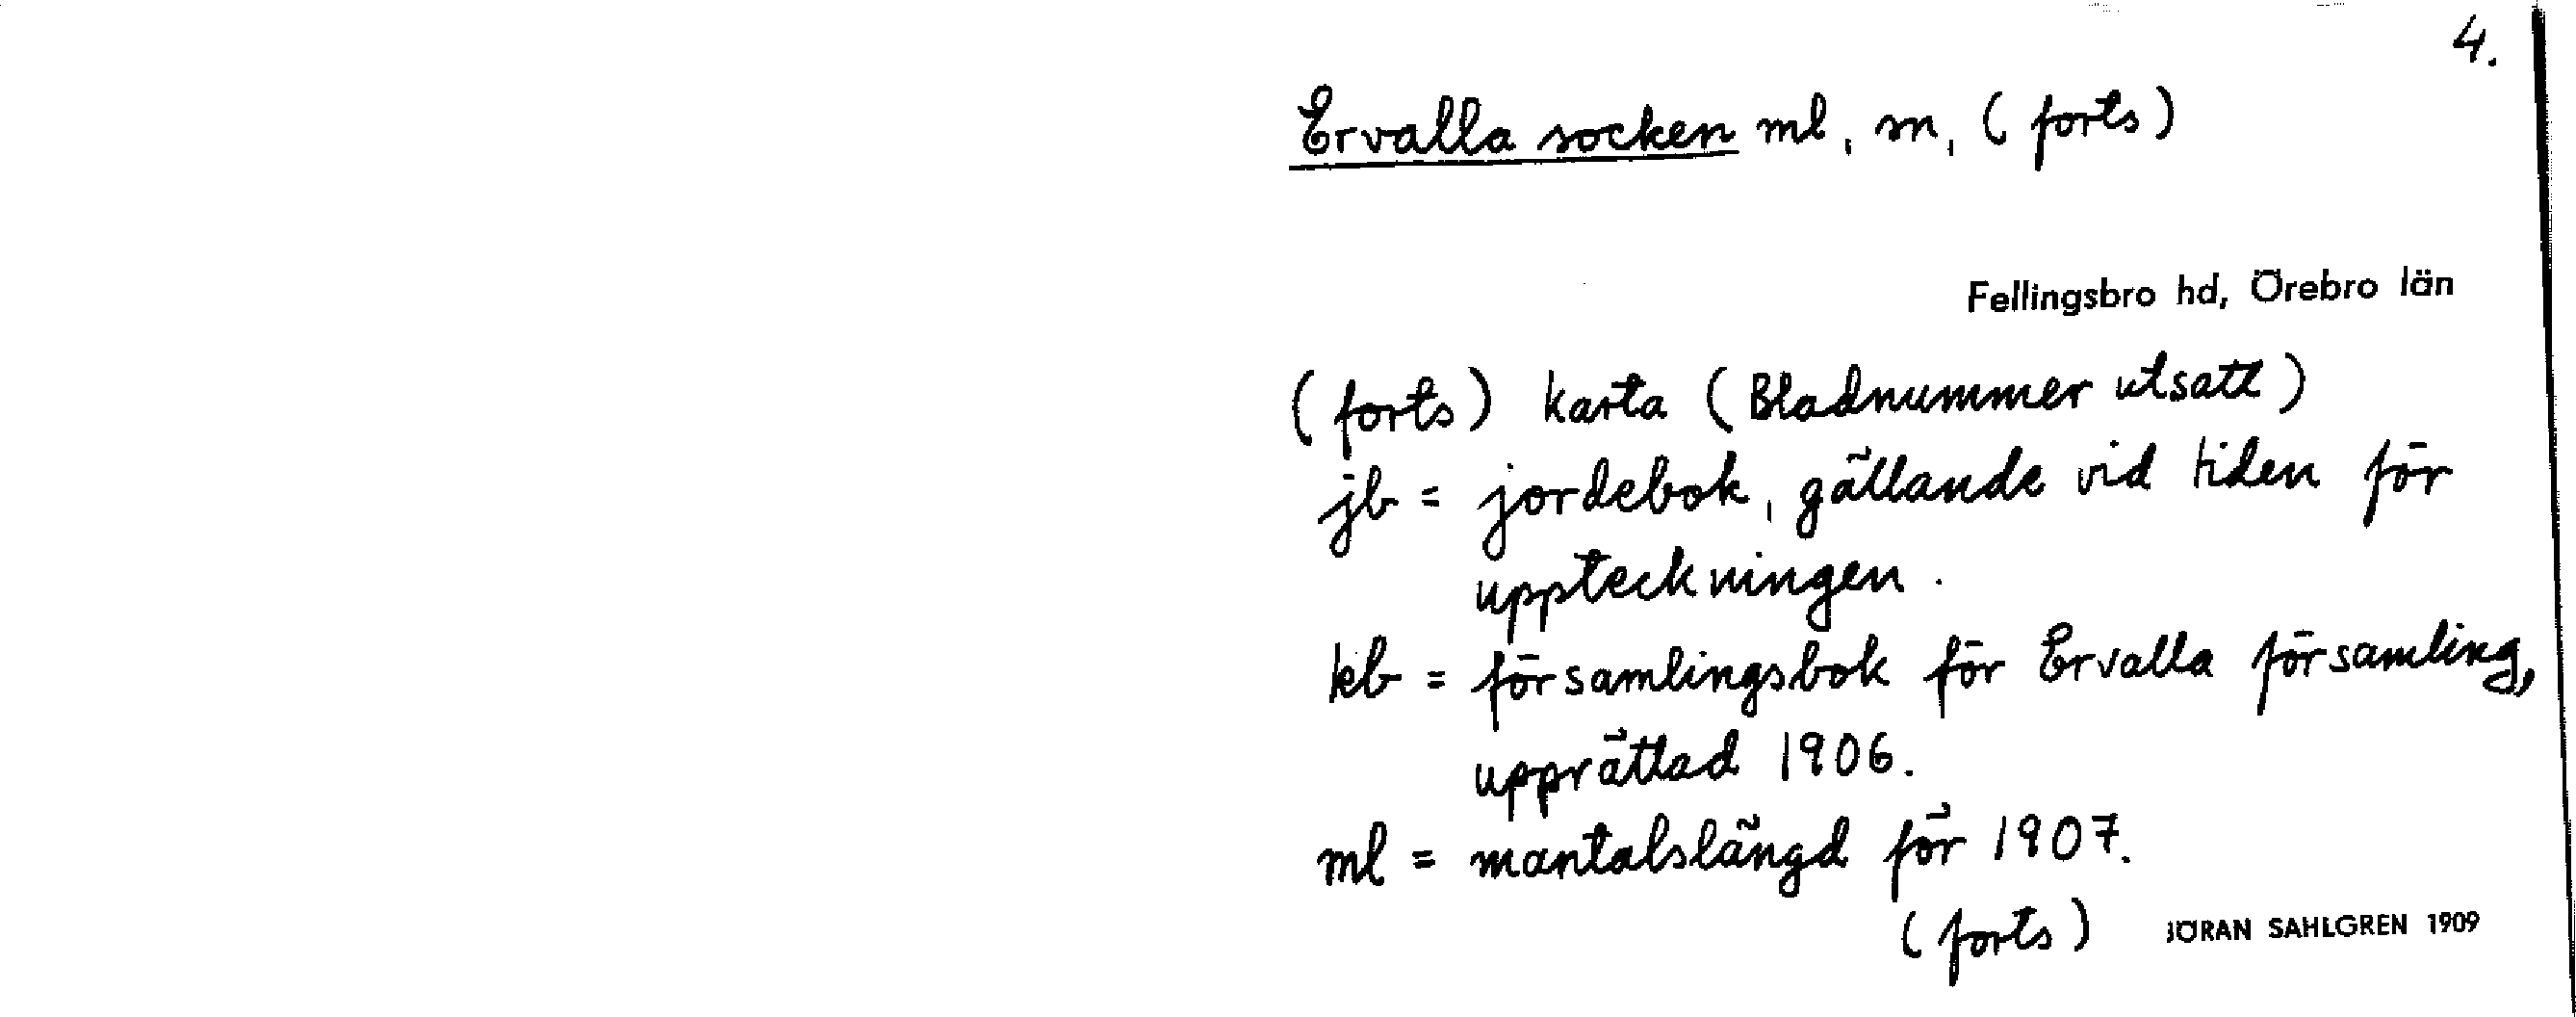 4.
Ervalla socken ml, m, (forts)
Fellingsbro hd, Örebro län
(forts) karta (Bladnummer utsatt)
jb = jordebok, gällande vid tiden för
uppteckningen.
kb = församlingsbok för Ervalla församling,
upprättad 1906.
ml = mantalslängd för 1907.
(forts) JÖRAN SAHLGREN 1909